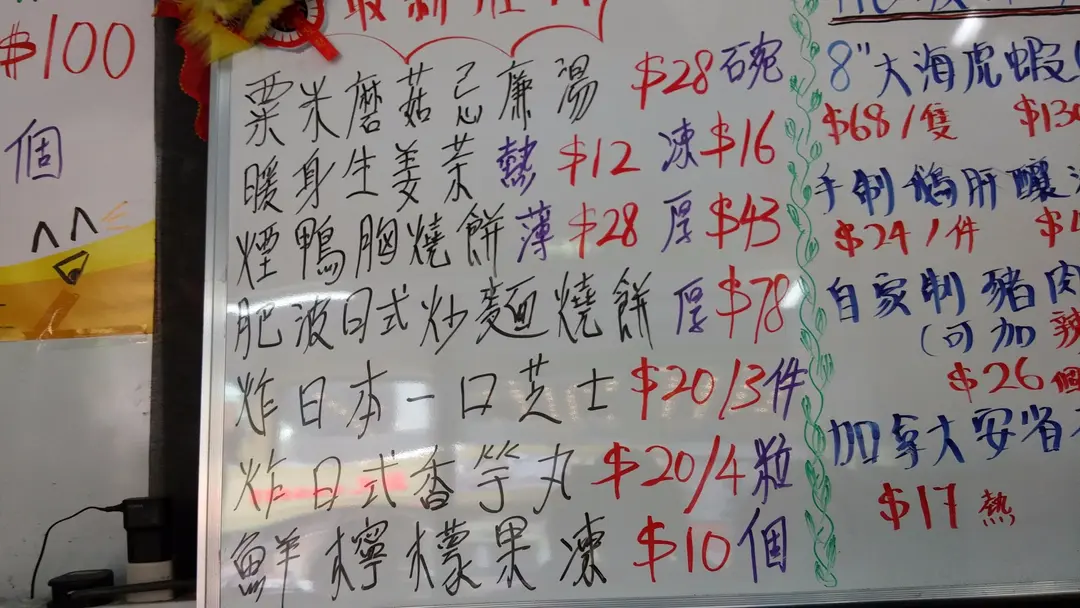 $100
個
粟米磨菇忌廉湯 $28 碗
暖身生姜茶 熱 $12 凍 $16
煙鴨胸燒餅 薄 $28 厚 $43
肥波日式炒麵燒餅 厚 $78
炸日本一口芝士 $20/3件
炸日式香芋丸 $20/4粒
鮮檸檬果凍 $10個
8"大海虎蝦
$68/隻
手制鵝肝釀
$24/件
自家制豬肉
(可加辣
$26個
加拿大安省
$17熱